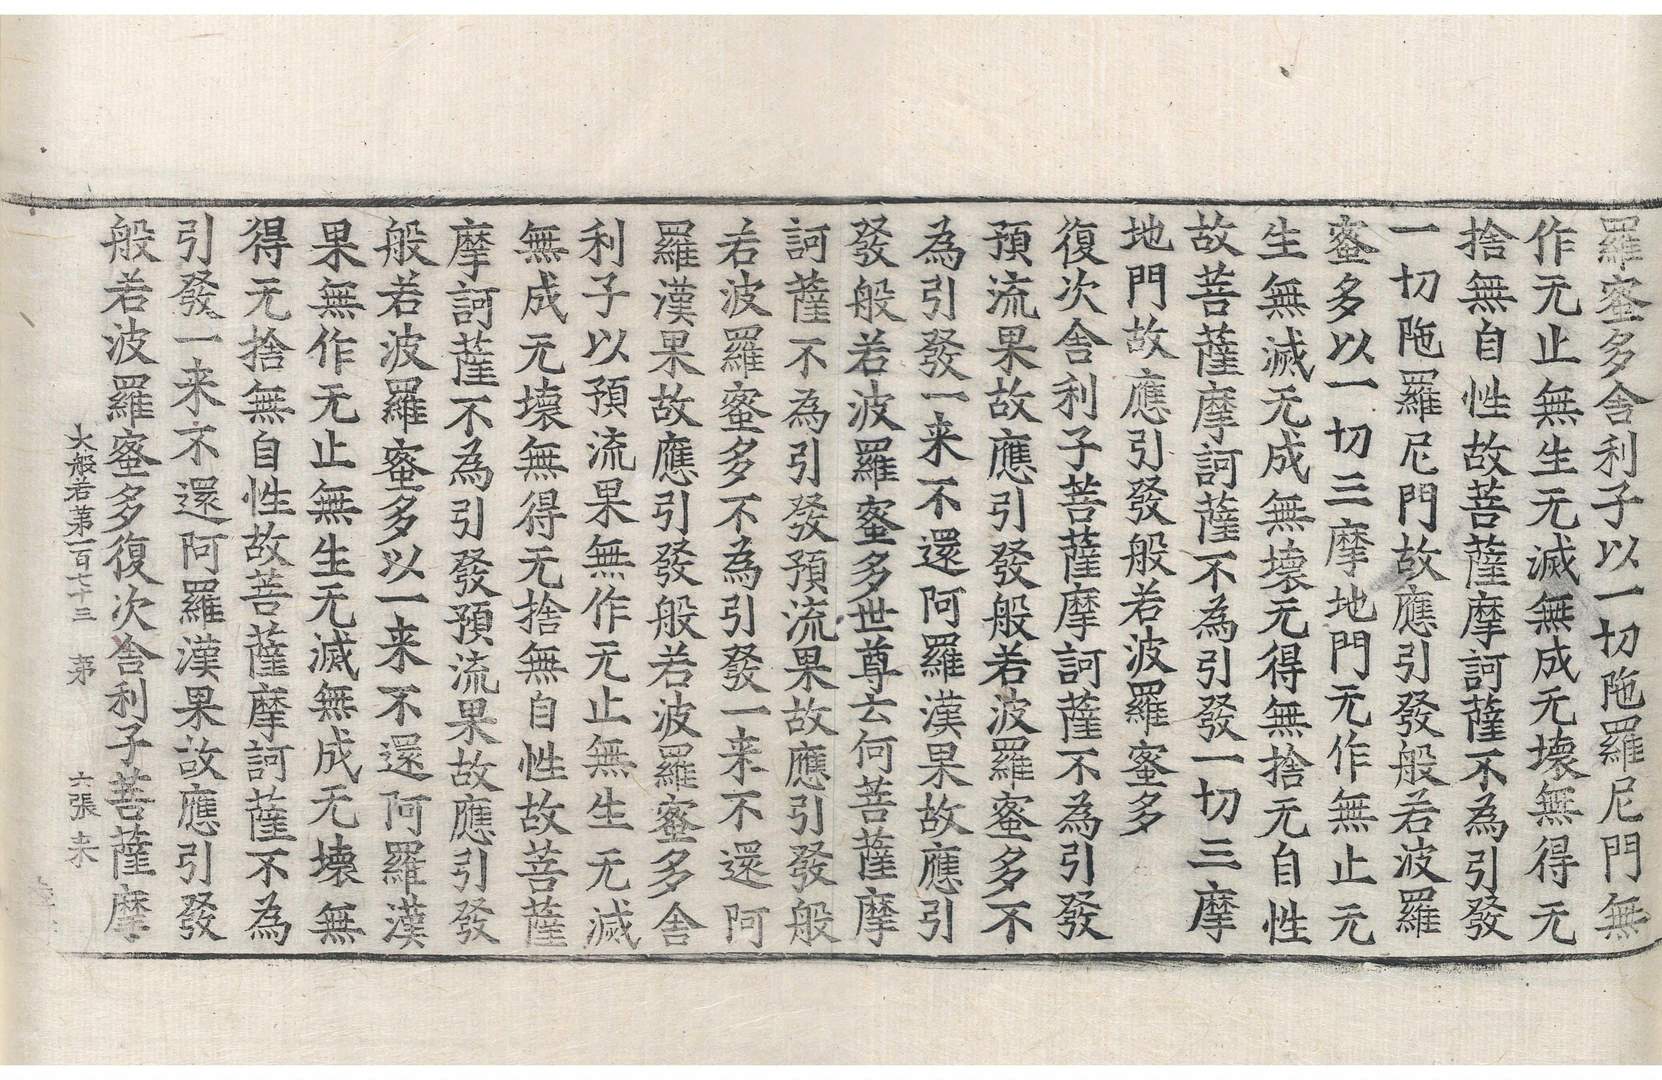 羅蜜多舍利子以一切陁羅尼門無
作无止無生无滅無成无壞無得无
捨無自性故菩薩摩訶薩不為引發
一切陁羅尼門故應引發般若波羅
蜜多以一切三摩地門无作無止无
生無滅无成無壞无得無捨无自性
故菩薩摩訶薩不為引發一切三摩
地門故應引發般若波羅蜜多
復次舍利子菩薩摩訶薩不為引發
預流果故應引發般若波羅蜜多不
為引發一来不還阿羅漢果故應引
發般若波羅蜜多世尊云何菩薩摩
訶薩不為引發預流果故應引發般
若波羅蜜多不為引發一来不還阿
羅漢果故應引發般若波羅蜜多舍
利子以預流果無作无止無生无滅
無成无壞無得无捨無自性故菩薩
摩訶薩不為引發預流果故應引發
般若波羅蜜多以一来不還阿羅漢
果無作无止無生无滅無成无壞無
得无捨無自性故菩薩摩訶薩不為
引發一来不還阿羅漢果故應引發
般若波羅蜜多復次舍利子菩薩摩
大般若第一百七十三 第 六張 来